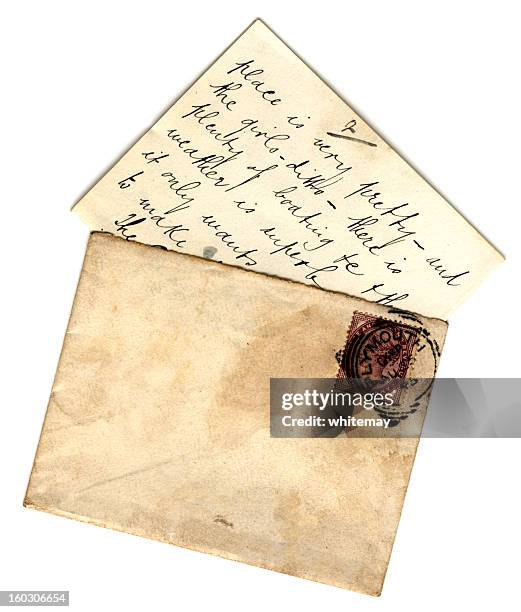 2
place is very pretty - and
the girls - ditto - there is
plenty of boating
weather is superb
it only wants
to make
The
PLYMOUTH
gettyimages
Credit: whitemay
160306654